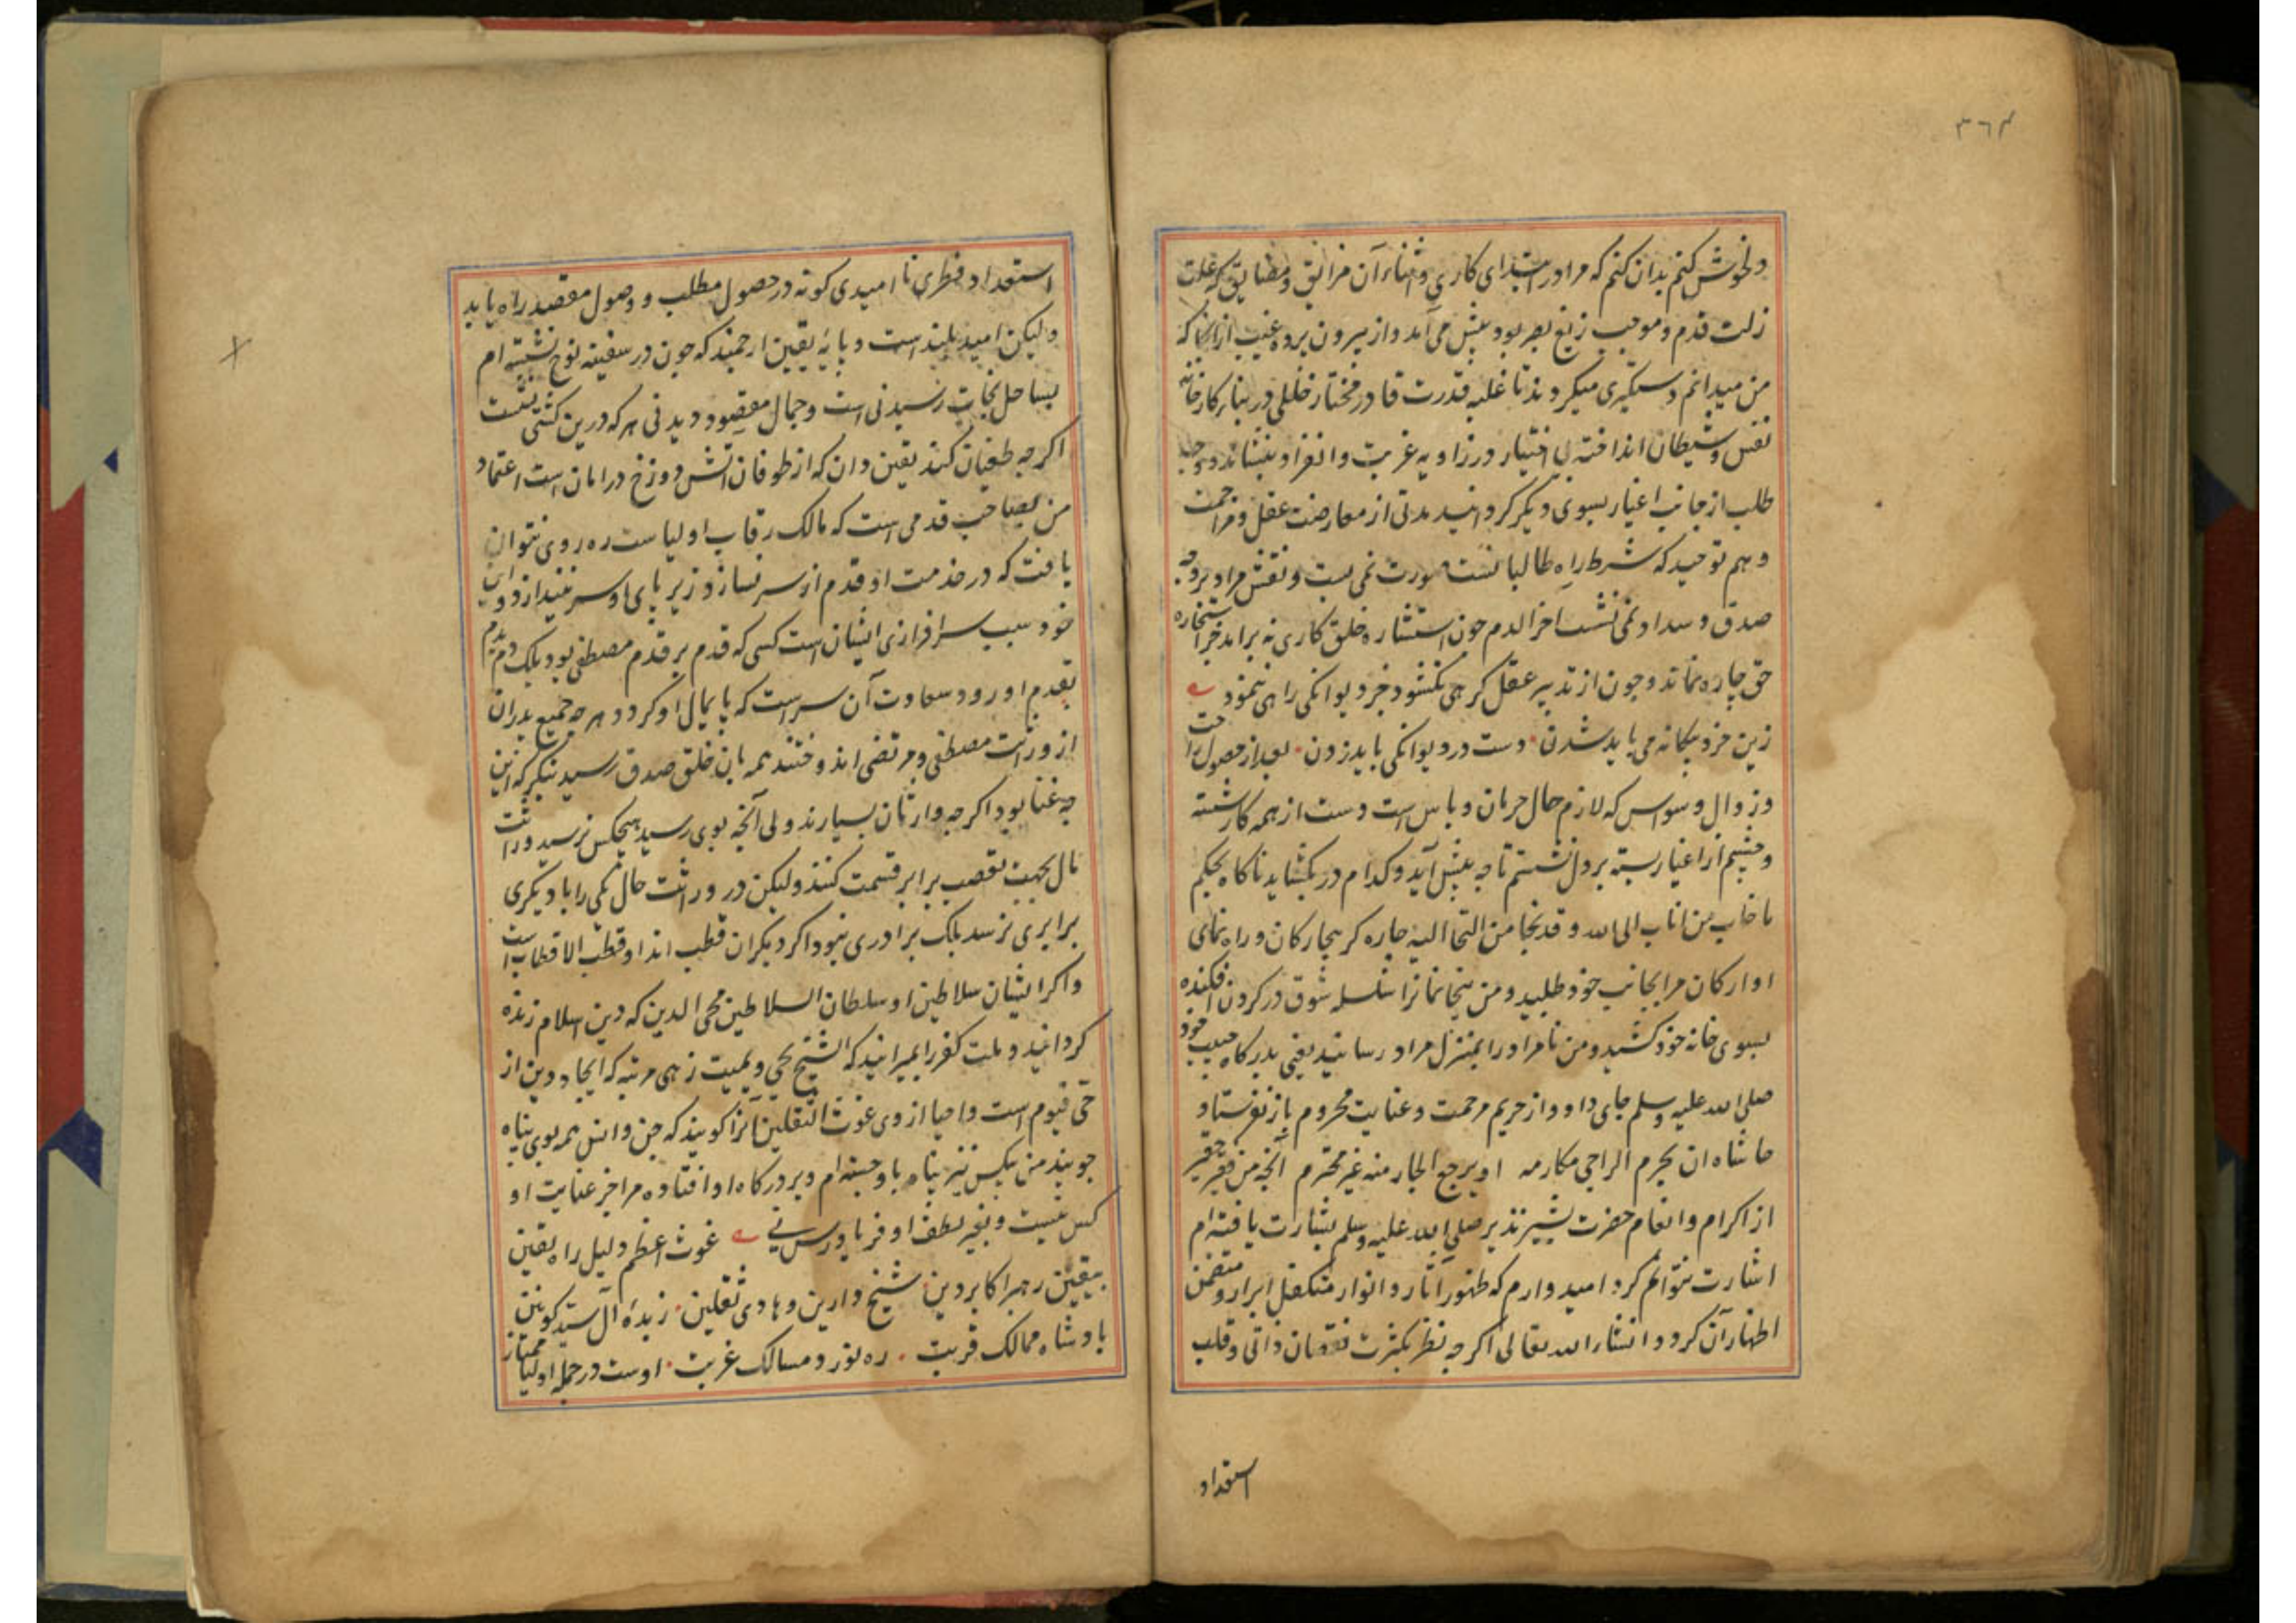 ۳۶۴
دلخوش کنم بدان کنم که مرا در ابتدای کاری و اثناء آن مزالیق و مضایق که علت
زلت قدم و موجب زیغ بصر بود پیش می آمد و از بیرون پرده غیب از انجا که
من میدانم دستکیری میکردند تا غلبه قدرت قادر مختار خللی در بناء کارخانه
نفس و شیطان انداخته بی اختیار در زاویه غربت و انفراد بنشاند و وجه
طلب از جانب اغیار بسوی دیکر کردانید مدتی از معارضت عقل و مزاحمت
وهم توحید که شرط راه طالبانست صورت نمی بست و نقش مراد بر وجه
صدق و سداد نمی نشست اخر الدم چون استشاره خلق کاری نه برامد جز استخاره
حق چاره نماند و چون از تدبیر عقل کرهی نکشود جز دیوانکی راهی ننمود
زین خرد بیکانه می باید شدن • دست در دیوانکی باید زدن • بعد از حصول راحت
و زوال وسواس که لازم حال حرمان و یاس است دست از همه کار شسته
و چشم از اغیار بسته بر دل نشستم تا چه پیش آید و کدام در بکشاید ناکاه بحکم
ما خاب من اناب الی الله و قد نجا من التجا الیه چاره کر بیچارکان و راه نمای
اوارکان مرا بجانب خود طلبید و من بیخانمانرا سلسله شوق در کردن افکنده
بسوی خانه خود کشید و من نامراد را بمنزل مراد رسانید یعنی بدرکاه حبیب خود
صلی الله علیه وسلم جای داد و از حریم مرحمت و عنایت محروم باز نفرستاد
حاشاه ان یحرم الراجی مکارمه او یرجع الجار منه غیر محترم آنچه من فقیر حقیر
از اکرام و انعام حضرت بشیر نذیر صلی الله علیه وسلم بشارت یافته ام
اشارت نتوانم کرد امیدوارم که ظهور آثار و انوار متکفل ابراز و متضمن
اظهار آن کردد انشاء الله تعالی اکرچه نظر بکثرت نقصان ذاتی و قلت
استعداد
استعداد فطری نا امیدی کونه در حصول مطلب و وصول مقصد راه یابد
ولیکن امید بلند است و پایه یقین ارجمند که چون در سفینه نوح نشسته ام
بساحل نجات رسیدنی است و جمال مقصود دیدنی هر که درین کشتی نشست
اکرچه طغیان کند یقین دان که از طوفان آتش دوزخ در امان است اعتماد
من بصاحب قدمی است که مالک رقاب اولیاست ره روی نتوان
یافت که در خدمت او قدم از سر نسازد و زیر پای او سر نیندازد و این
خود سبب سرافرازی ایشان است کسی که قدم بر قدم مصطفی بود بلک دم بدم
بقدم او رود سعادت آن سر است که پایمال او کردد و هر چه جمیع پدران
از وراثت مصطفی و مرتضی اندوختند همه بان خلق صدق رسید بنکر که این
چه غنا بود اکرچه وارثان بسیارند ولی آنچه بوی رسید بهیچکس نرسید وراثت
مال بجهت تعصیب برابر قسمت کنند ولیکن در وراثت حال یکی را با دیکری
برابری نرسد بلک برادری نبود اکر دیکران قطب اند او قطب الاقطاب است
و اکر ایشان سلاطین او سلطان السلاطین محی الدین که دین اسلام زنده
کردانید و ملت کفر را بمیرانید که الشیخ یحی و یمیت زهی مرتبه که ایجاد دین از
حی قیوم است و احیا از وی غوث الثقلین آنرا کویند که جن و انس همه بوی پناه
جویند من بیکس نیز پناه باو جسته ام و بر درکاه او افتاده مرا جز عنایت او
کس نیست و بغیر لطف او فریادرس نی غوث اعظم دلیل راه یقین
بیقین رهبر اکابر دین • شیخ دارین و هادی ثقلین • زبده آل سید کونین
بادشاه ممالک قربت • ره نورد مسالک غربت • اوست در جمله اولیا ممتاز